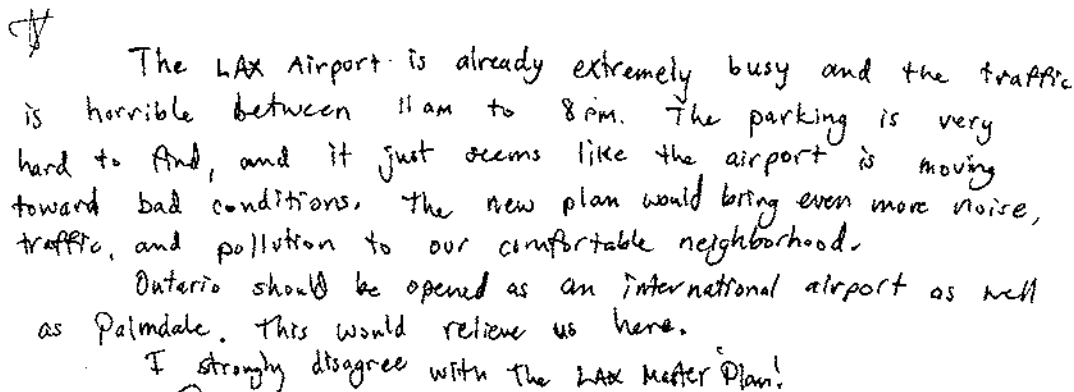 The LAX Airport is already extremely busy and the traffic
is horrible between 11am to 8pm. The parking is very
hard to find, and it just seems like the airport is moving
toward bad conditions. The new plan would bring even more noise,
traffic, and pollution to our comfortable neighborhood.
Ontario should be opened as an international airport as well
as Palmdale. This would relieve us here.
I strongly disagree with the LAX Master Plan!